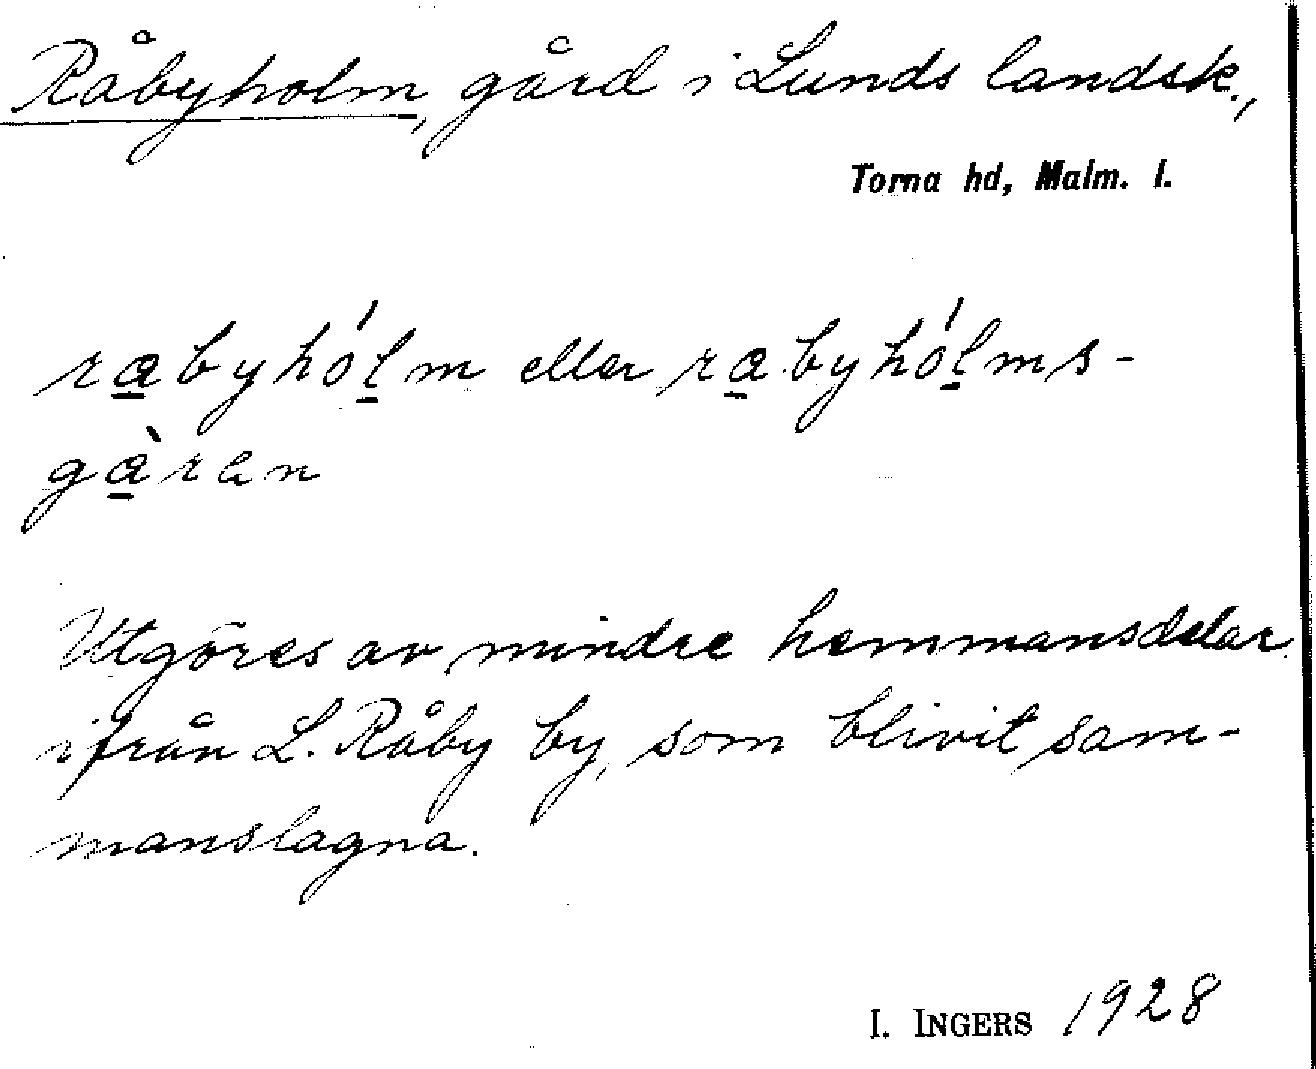 Råbyholm, gård i Lunds landsk.,
Torna hd, Malm. l.
ra̲byhól̲m eller ra̲byhól̲ms-
gà̲ren
Utgöres av mindre hemmansdelar
ifrån L. Råby by, som blivit sam-
manslagna.
I. INGERS 1928